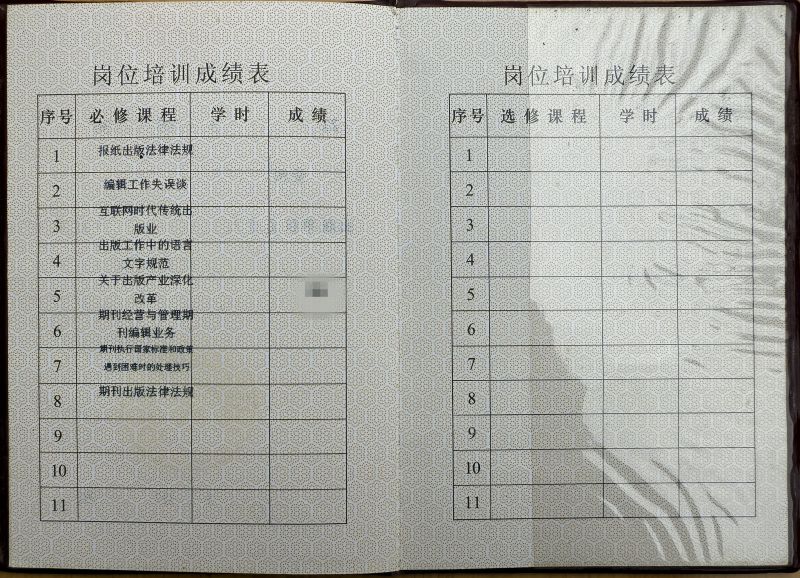 岗位培训成绩表
序号 必修课程 学时 成绩
1 报纸出版法律法规
2 编辑工作失误谈
3 互联网时代传统出
版业
4 出版工作中的语言
文字规范
5 关于出版产业深化
改革
6 期刊经营与管理期
刊编辑业务
7 期刊执行国家标准和政策
遇到困难时的处理技巧
8 期刊出版法律法规
9
10
11
岗位培训成绩表
序号 选修课程 学时 成绩
1
2
3
4
5
6
7
8
9
10
11